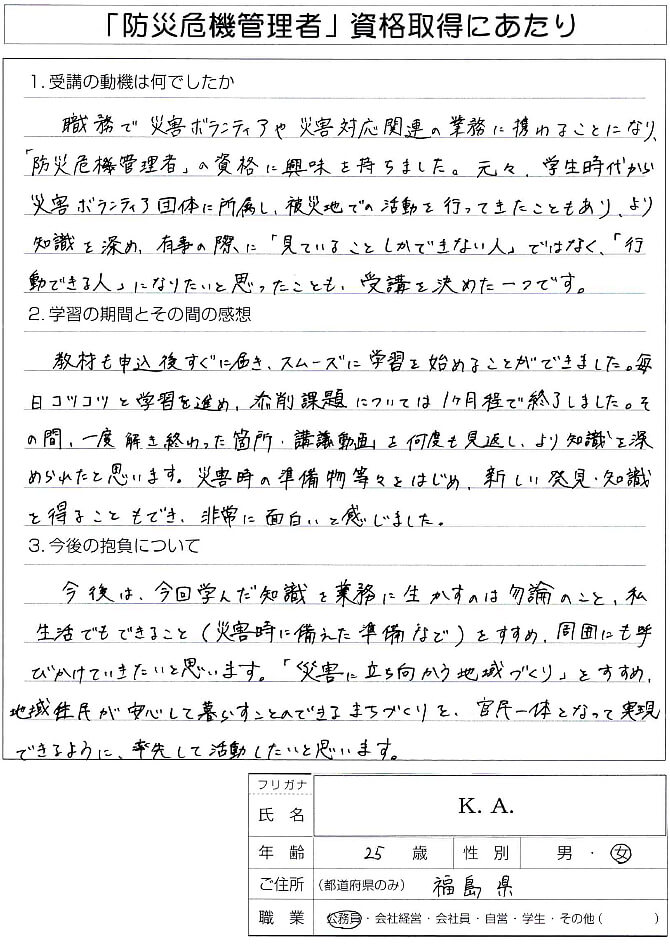 「防災危機管理者」資格取得にあたり
1. 受講の動機は何でしたか
職務で災害ボランティアや災害対応関連の業務に携わることになり、
「防災危機管理者」の資格に興味を持ちました。元々、学生時代から
災害ボランティア団体に所属し、被災地での活動を行ってきたこともあり、より
知識を深め、有事の際に「見ていることしかできない人」ではなく、「行
動できる人」になりたいと思ったことも、受講を決めた一つです。
2. 学習の期間とその間の感想
教材も申込後すぐに届き、スムーズに学習を始めることができました。毎
日コツコツと学習を進め、添削課題については1ヶ月程で終了しました。そ
の間、一度解き終わった箇所・講議動画を何度も見返し、より知識を深
められたと思います。災害時の準備物等々をはじめ、新しい発見・知識
を得ることもでき、非常に面白いと感じました。
3. 今後の抱負について
今後は、今回学んだ知識を業務に生かすのは勿論のこと、私
生活でもできること（災害時に備えた準備など）をすすめ、周囲にも呼
びかけていきたいと思います。「災害に立ち向かう地域づくり」をすすめ、
地域住民が安心して暮らすことのできるまちづくりを、官民一体となって実現
できるように、率先して活動したいと思います。
フリガナ
氏名 K. A.
年齢 25 歳 性別 男・女
ご住所 (都道府県のみ) 福島県
職業 公務員・会社経営・会社員・自営・学生・その他( )